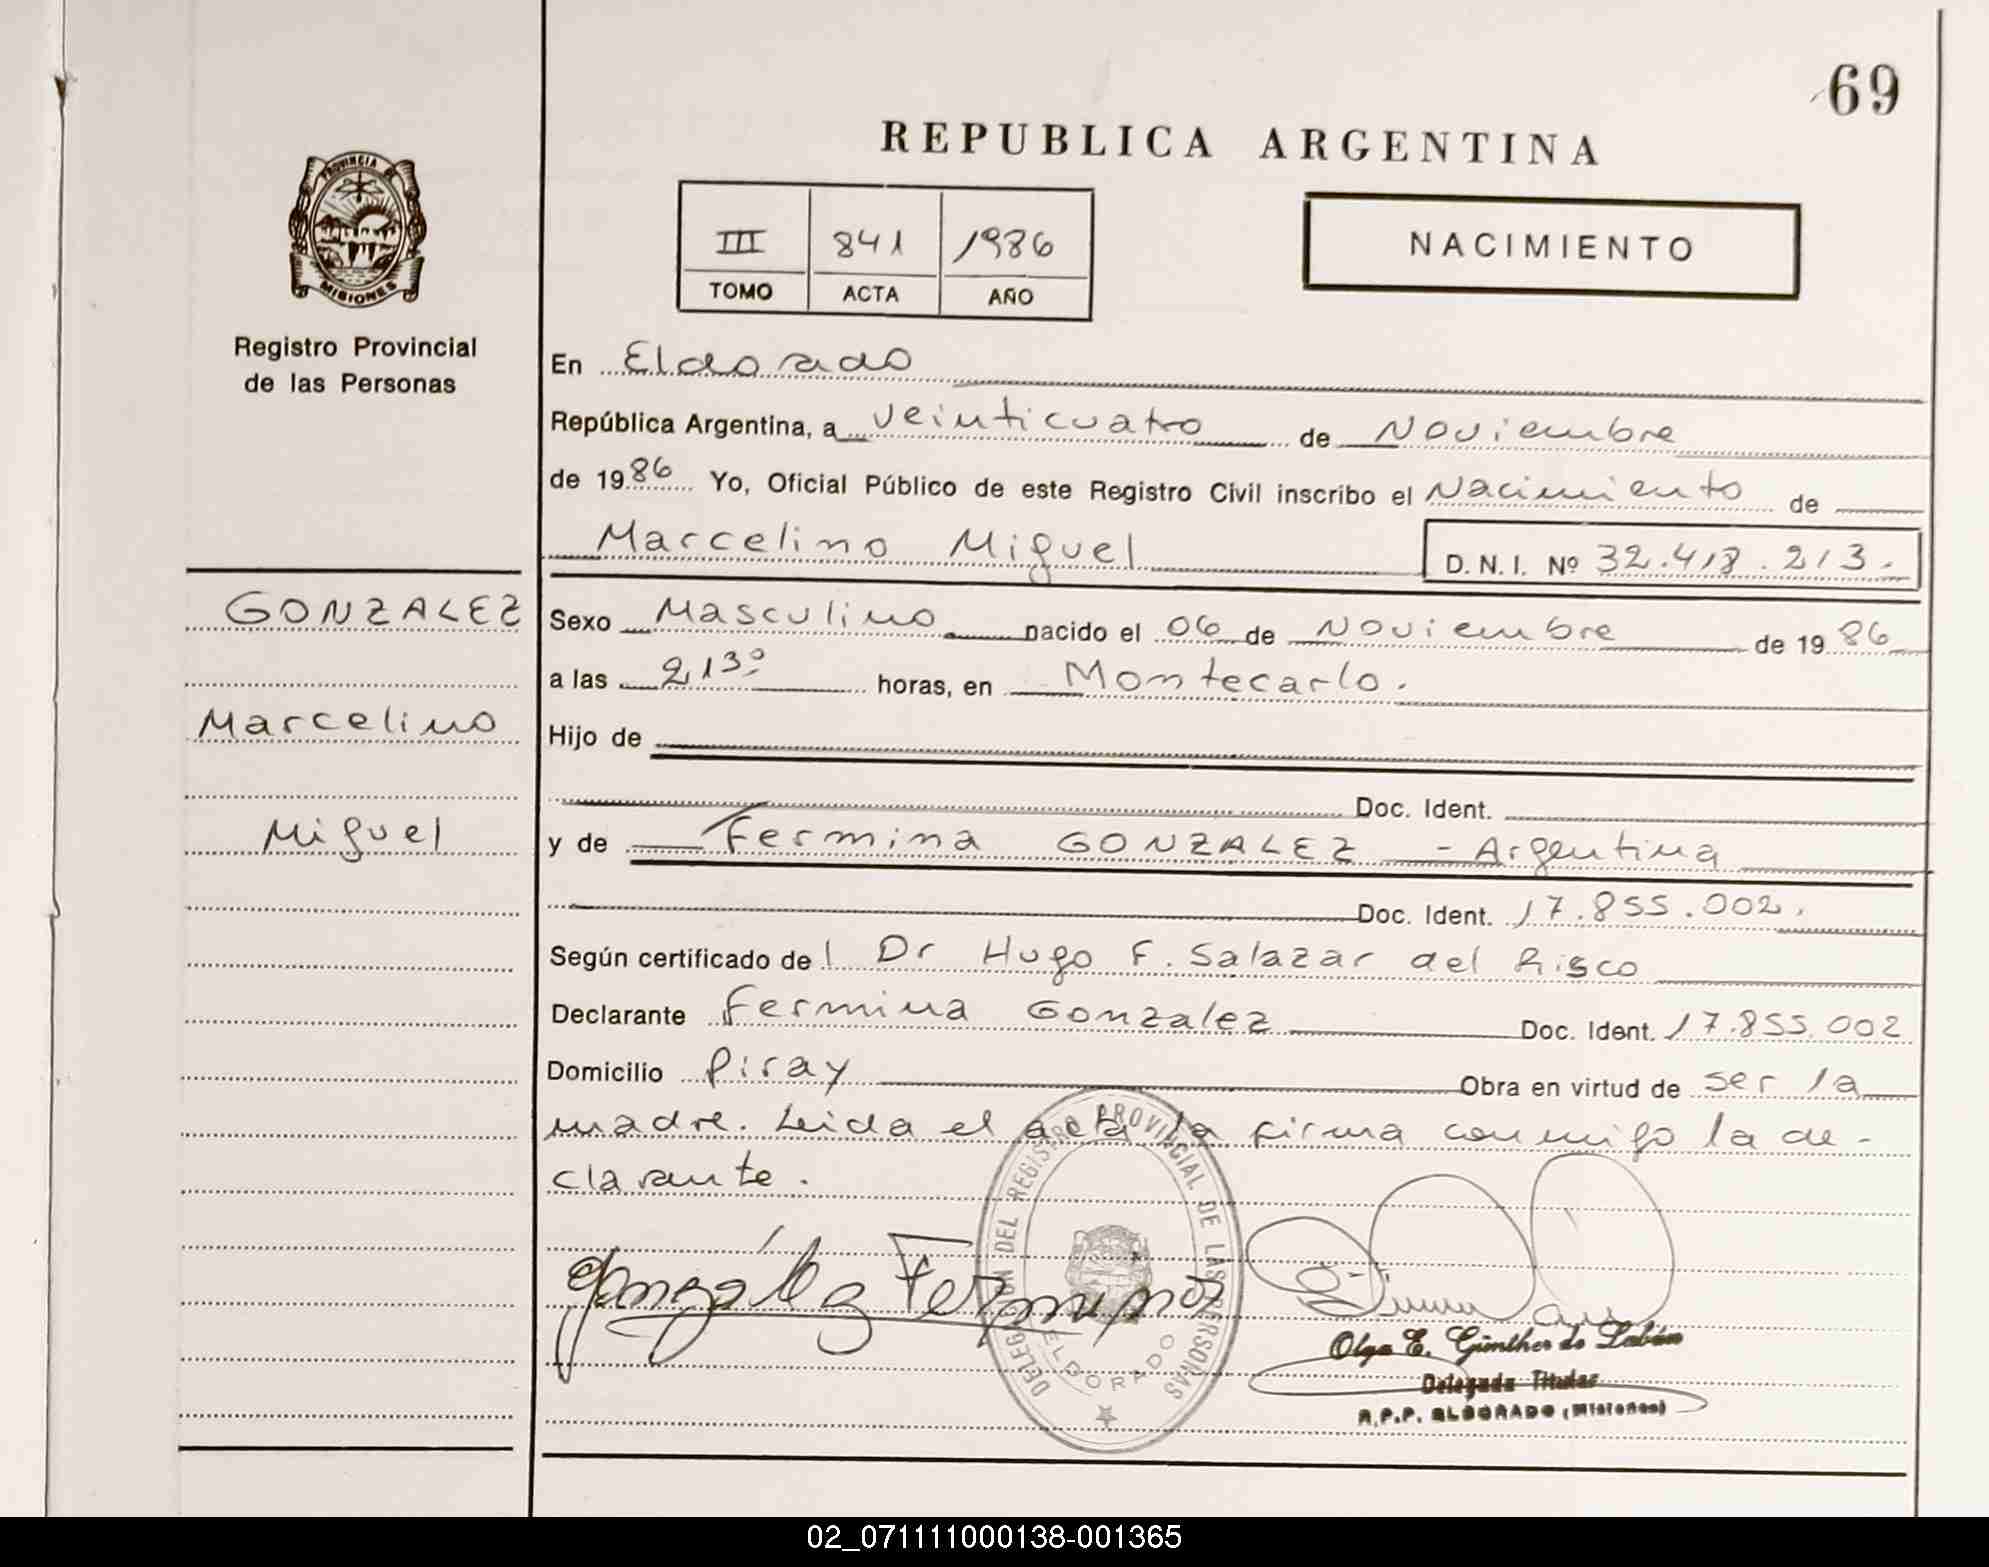 69
REPUBLICA ARGENTINA
PROVINCIA
MISIONES
Registro Provincial
de las Personas
III 841 1986
TOMO ACTA AÑO
NACIMIENTO
En Eldorado
República Argentina, a veinticuatro de Noviembre
de 1986 Yo, Oficial Público de este Registro Civil inscribo el Nacimiento de
Marcelino Miguel D. N. I. Nº 32.418.213.
GONZALEZ
Marcelino
Miguel
Sexo Masculino nacido el 06 de Noviembre de 1986
a las 21³⁰ horas, en Montecarlo.
Hijo de
Doc. Ident.
y de Fermina GONZALEZ - Argentina
Doc. Ident. 17.855.002.
Según certificado del Dr Hugo F. Salazar del Risco
Declarante Fermina Gonzalez Doc. Ident. 17.855.002
Domicilio Piray Obra en virtud de ser la
madre. Leida el acta la firma conmigo la de-
clarante.
González Fermina
DELEGACION DEL REGISTRO PROVINCIAL DE LAS PERSONAS
ELDORADO
Olga E. Günther de Labán
Delegada Titular
R.P.P. ELDORADO (Misiones)
02_071111000138-001365